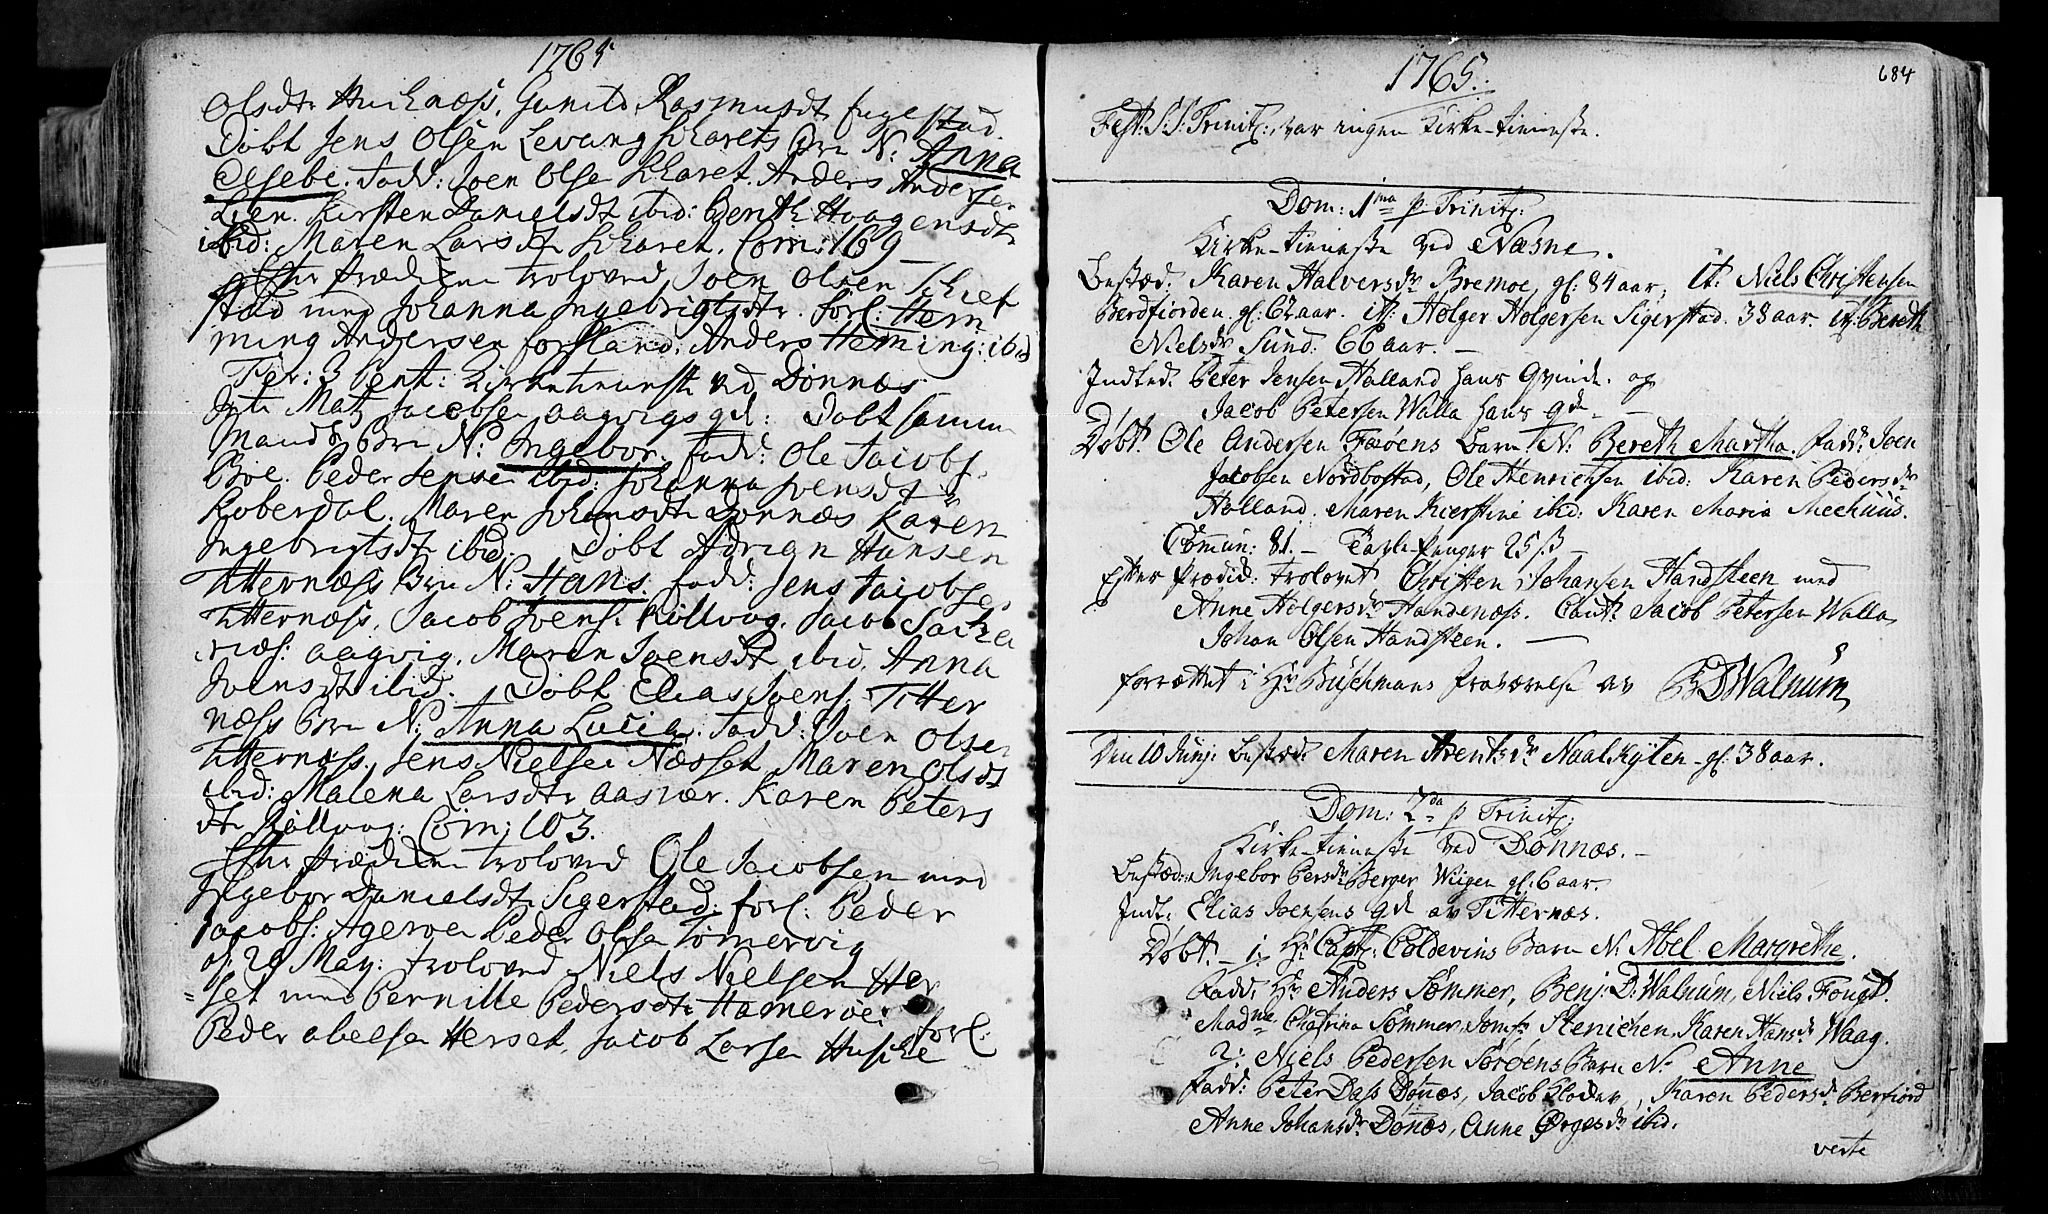 1765
Olsdtr Huusnæss, Gunild Rasmusdtr Fugestad.
Döbt Jens Olsen Levung Skarets Brn N: Anna
Elsebe. Fadd: Joen Olse Skaret. Anders Anderse
Lien. Kirsten Danielsdtr ibid: Berith Haagensdtr
ibid: Maren Larsdtr Skaret. Com: 169
Efter Prædiken troloved Joen Olsen Schief
stad med Johanna Ingebrigtsdtr. forl: Hem
ming Andersen forsland. Anders Heming: ibid
Fer: 3 Pent: Kirketienneste ved Dönnæs
Int: Matz Jacobsen aagvigs qd: Döbt samme
Mands Brn N: Ingebor. fadd: Ole Jacobs.
Boe. Peder Jense ibid: Johanna Joensdtr
Koberdal. Maren Johansdtr Dönnæs Karen
Ingebrigtsdtr ibid: Döbt Adrian Hansen
Titternæss Brn N: Hans. fadd: Jens Jacobse
Titternæss. Jacob Joens: Kollvog. Jacob Sacha
rias: aagvig. Maren Joensdtr ibid. Anna
Joensdtr ibid. Döbt Elias Joens: Titter
næss Brn N: Anna Lucia. Fadd: Joen Olsen
Titternæss. Jens Nielse Næsset Maren Olsdtr
ibid: Malena Larsdtr aasvær. Karen Peters
dtr Kollvog: Com: 103.
Efter Prædiken troloved Ole Jacobsen med
Ingebor Danielsdtr Sigerstad: forl: Peder
Jacobs: Ageröe Peder Olse Tömervig
d. 20 May: troloved Niels Nielsen Her
set med Pernille Pedersdtr Hameröe: forl:
Peder abelse Herset, Jacob Larse Husbye
1765. 684
Fest: S: S: Trinit: var ingen Kirke-tienneste.
Dom: 1ma p Trinit:
Kirke-tienneste ved Næsne.
Bested: Karen Halversdr Bremoe, gl: 84 aar; it: Niels Christensen
Berdfiorden gl: 62 aar. it: Holger Holgersen Sigerstad. 38 aar. it: Bereth
Nielsdr Sund: 66 aar.
Indled: Peter Jensen Halland hans Qvinde. og
Jacob Petersen Walla hans qde
Döbt. Ole Andersen Faröens Barn N: Bereth Martha. fadd: Joen
Jacobsen Nordbostad, Ole Henrichsen ibid: Karen Pedersdr
Halland. Maren Kierstine ibid: Karen Maria Meehuus.
Commun: 81. Tavle-Penger 25 ß
Efter Prædid: trolovet Christen Johansen Handsteen med
Anne Holgersdr Handenæss. Caut: Jacob Petersen Walla
Johan Olsen Handsteen.
forrættet i Hr Buschmans fraværelse av BDWalnum
Den 10 Junj: Bested: Maren Arentsdr Naalskyten gl: 38 aar.
Dom: 2da p Trinit:
Kirke-tienneste ved Dönnæs.
Bested: Ingebor Persdr Berger Wiigen gl: 6 aar.
Indl: Elias Joensens qd av Titternæs.
Döbt. 1: Hr Capt: Coldevins Barn N: Abel Margrethe.
Fadd: Hr Anders Sömmer, Benj: D: Walnum, Niels Fougt.
Madme Chatrina Sömmer, Jomfr Stenichen Karen Hansdr Waag.
2: Niels Pedersen Söröens Barn N: Anne
Fadd: Peter Dass Dönæs, Jacob Kloder, Karen Pedersdr Berfiord
Anne Johansdr Dönæs, Anne Ørgesdr ibid.
verte